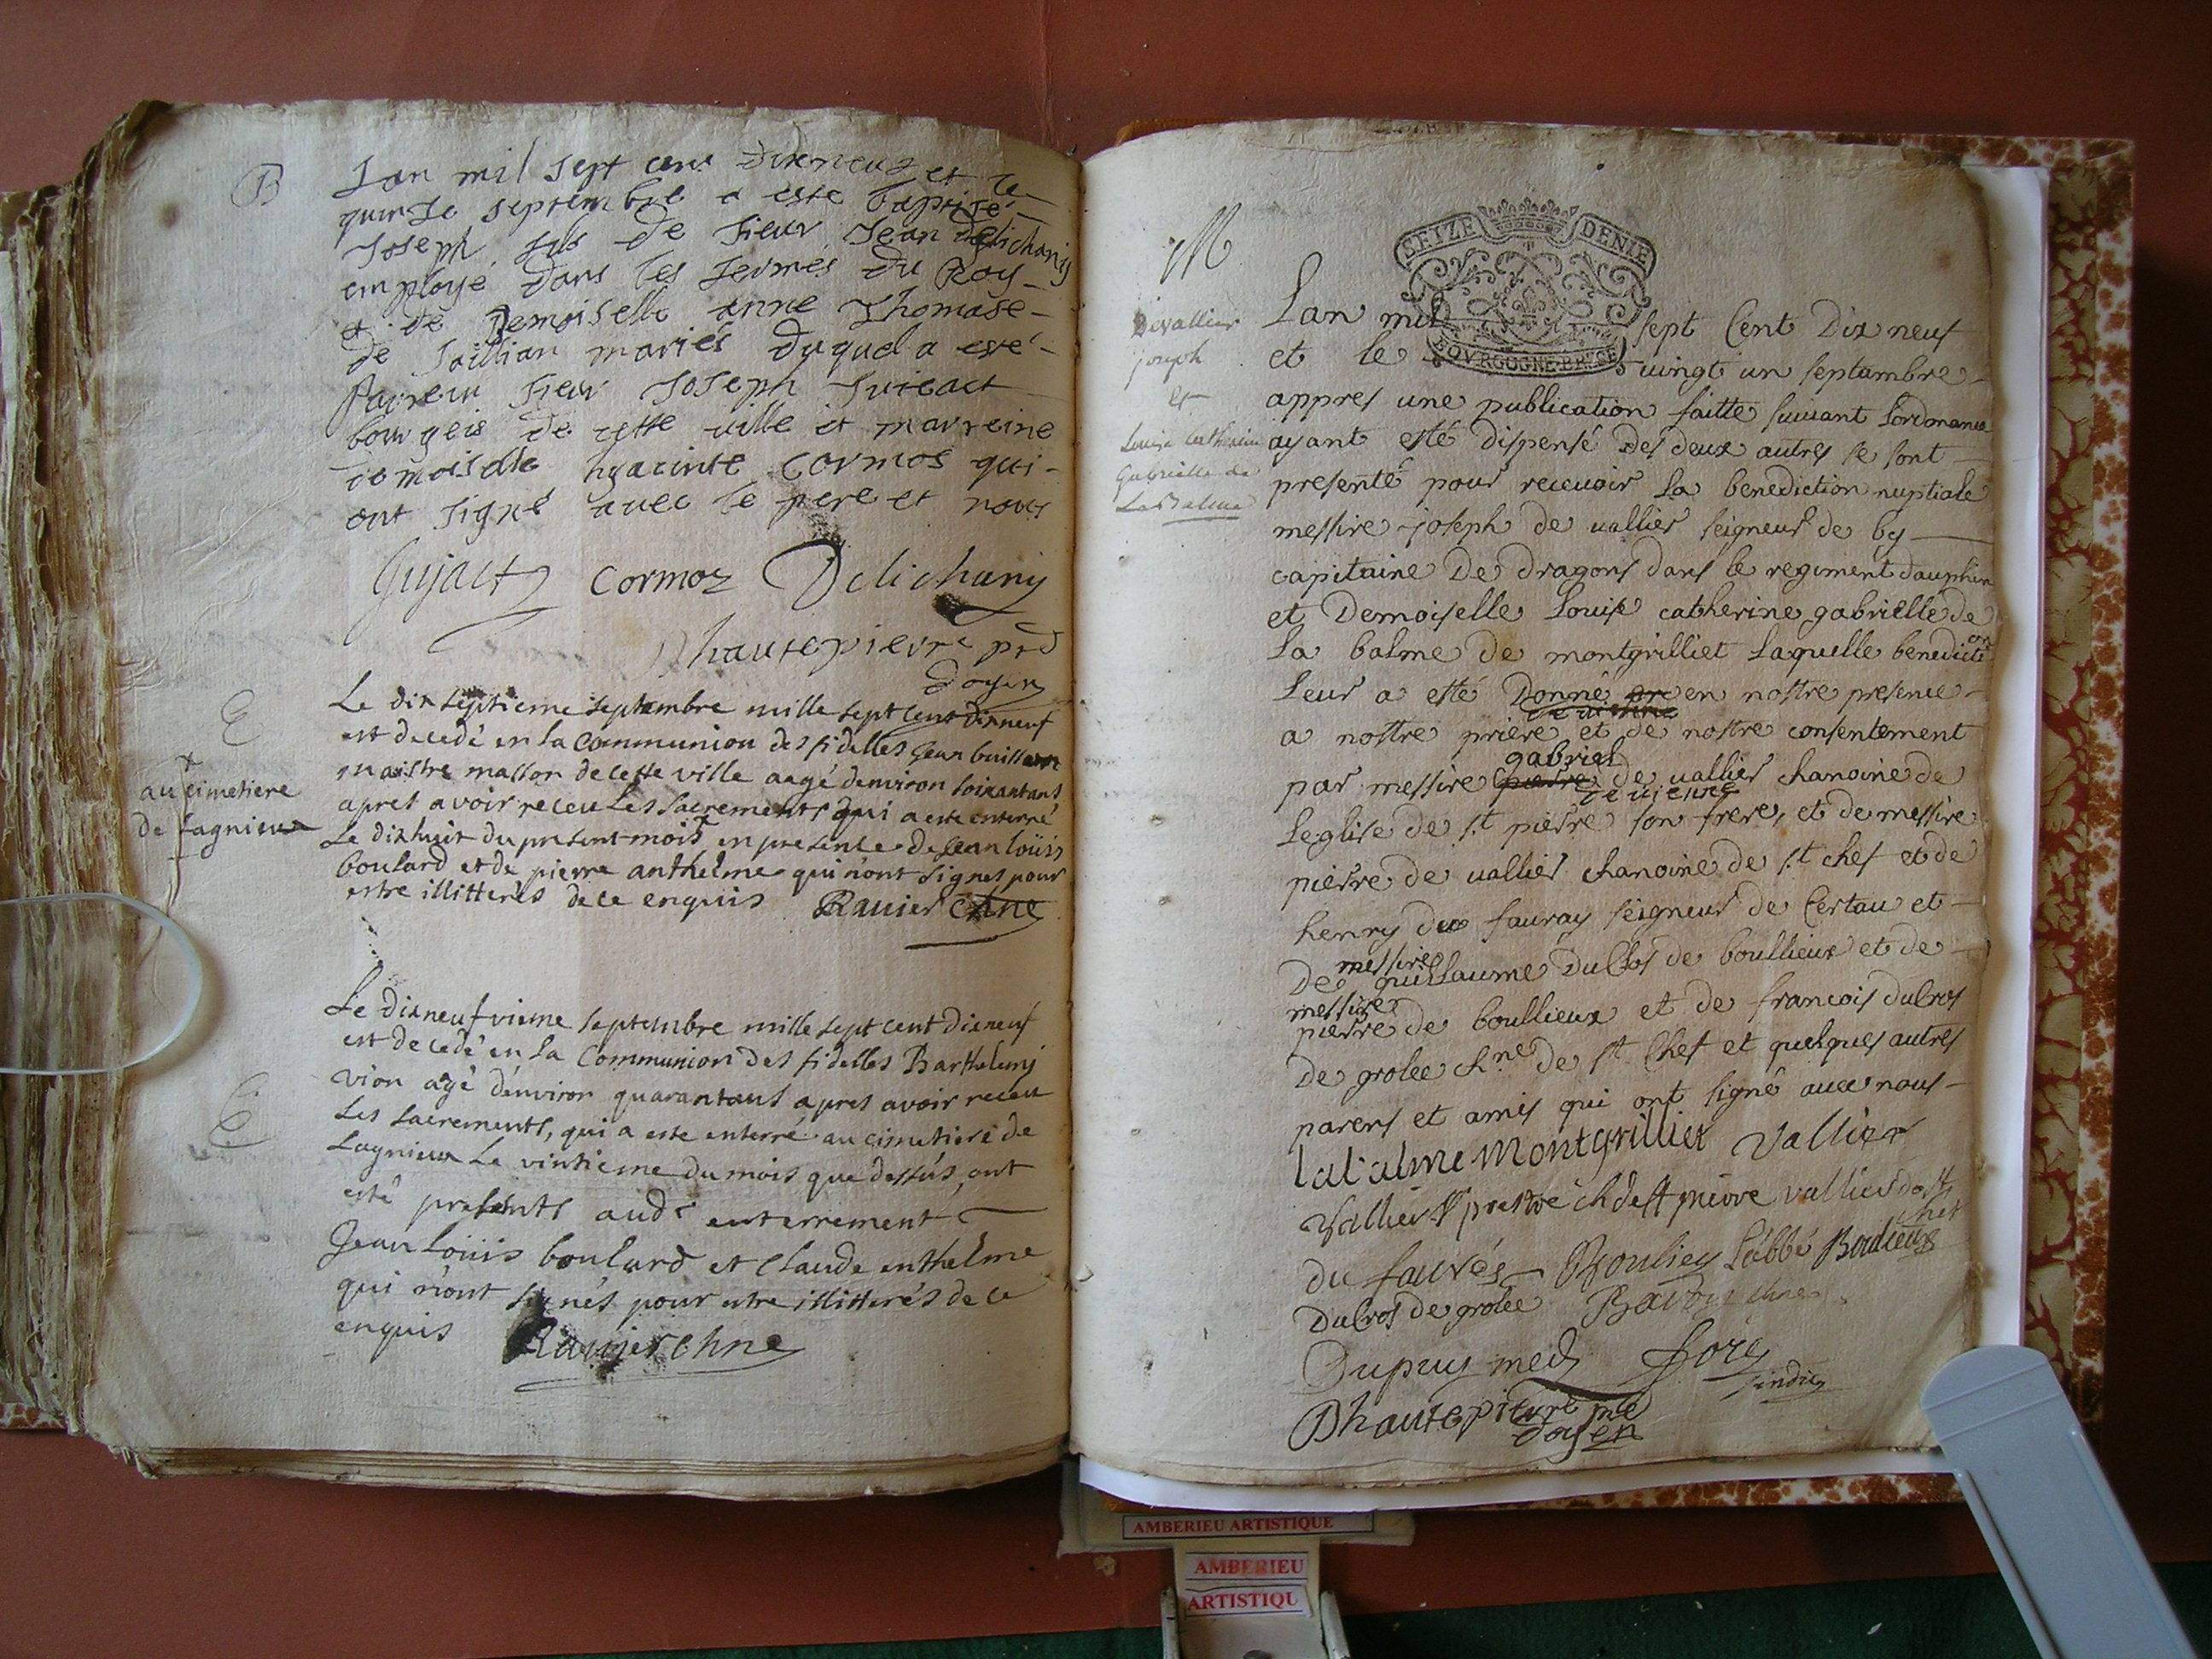 B
Lan mil sept cent dixneuf et le
quinze septembre a esté baptisé
Joseph fils de sieur Jean Delichany
employé dans les fermes du Roy
et de Demoiselle anne Thomase
de Jaillian mariés duquel a esté
parrein sieur Joseph
bourgeis de cette ville et marreine
demoiselle hyacinte Cormos qui
ont signé avec le pere et nous
Gujact Cormoz Delichany
Dhautepierre prd
doyen
E
Le dix septieme septembre mille sept cent dixneuf
est decedé en la Communion des fidelles Jean
maistre masson de cette ville aagé denviron soixantans
apres avoir receu les sacrements qui a esté enterré
Le dixhuit du present mois en presence de Jean loüis
boulard et de pierre anthelme qui n'ont signes pour
estre illitterés de ce enquis Ravier chne
+
au cimetiere
de Lagnieu
E
Le dixneufvieme septembre mille sept cent dixneuf
est decedé en la Communion des fidelles Barthelemy
vion agé d'environ quarantans apres avoir receu
Les sacrements, qui a este enterré au cimetiere de
Lagnieu Le vintieme du mois que dessus, ont
esté presents audt enterrement
Jean Loüis boulard et Claude enthelme
qui n'ont signés pour estre illitterés de ce
enquis Ravier chne
M
Devallier
joseph
et
Louise Catherine
Gabrielle de
La Balme
SEIZE DENIE
BOURGOGNE BRESSE
Lan mil sept Cent Dix neuf
et le vingt un septambre
appres une publication faitte suivant lordonance
ayant esté dispensé des deux autres se sont
presenté pour recevoir la benediction nuptiale
messire joseph de vallier seigneur de by
capitaine De dragons dans le regiment dauphin
et Demoiselle Louise catherine gabrielle de
La balme de montgrilliet Laquelle benediction
Leur a esté Donné en nostre presence
a nostre priere et de nostre consentement
par messire gabriel de vallier chanoine de
Leglise de st pierre de vienne son frere, et de messire
pierre de vallier chanoine de st chef et de
henry du fauray seigneur de Certau et
De messire guillaume Du Clos de boullieux et de
messire pierre de boullieux et de francois dulros
De grolee chne de st Chef et quelques autres
parens et amis qui ont signé avec nous
labalme Montgrilliet Vallier
Vallier prestre ch de st pierre vallier de st
chef
du fauvés Boulieu L'abbé Boulieu
Ducros de grolée chne
Dupuy med
sindic
Dhautepierre prd
doyen
AMBERIEU ARTISTIQUE
AMBERIEU
ARTISTIQU